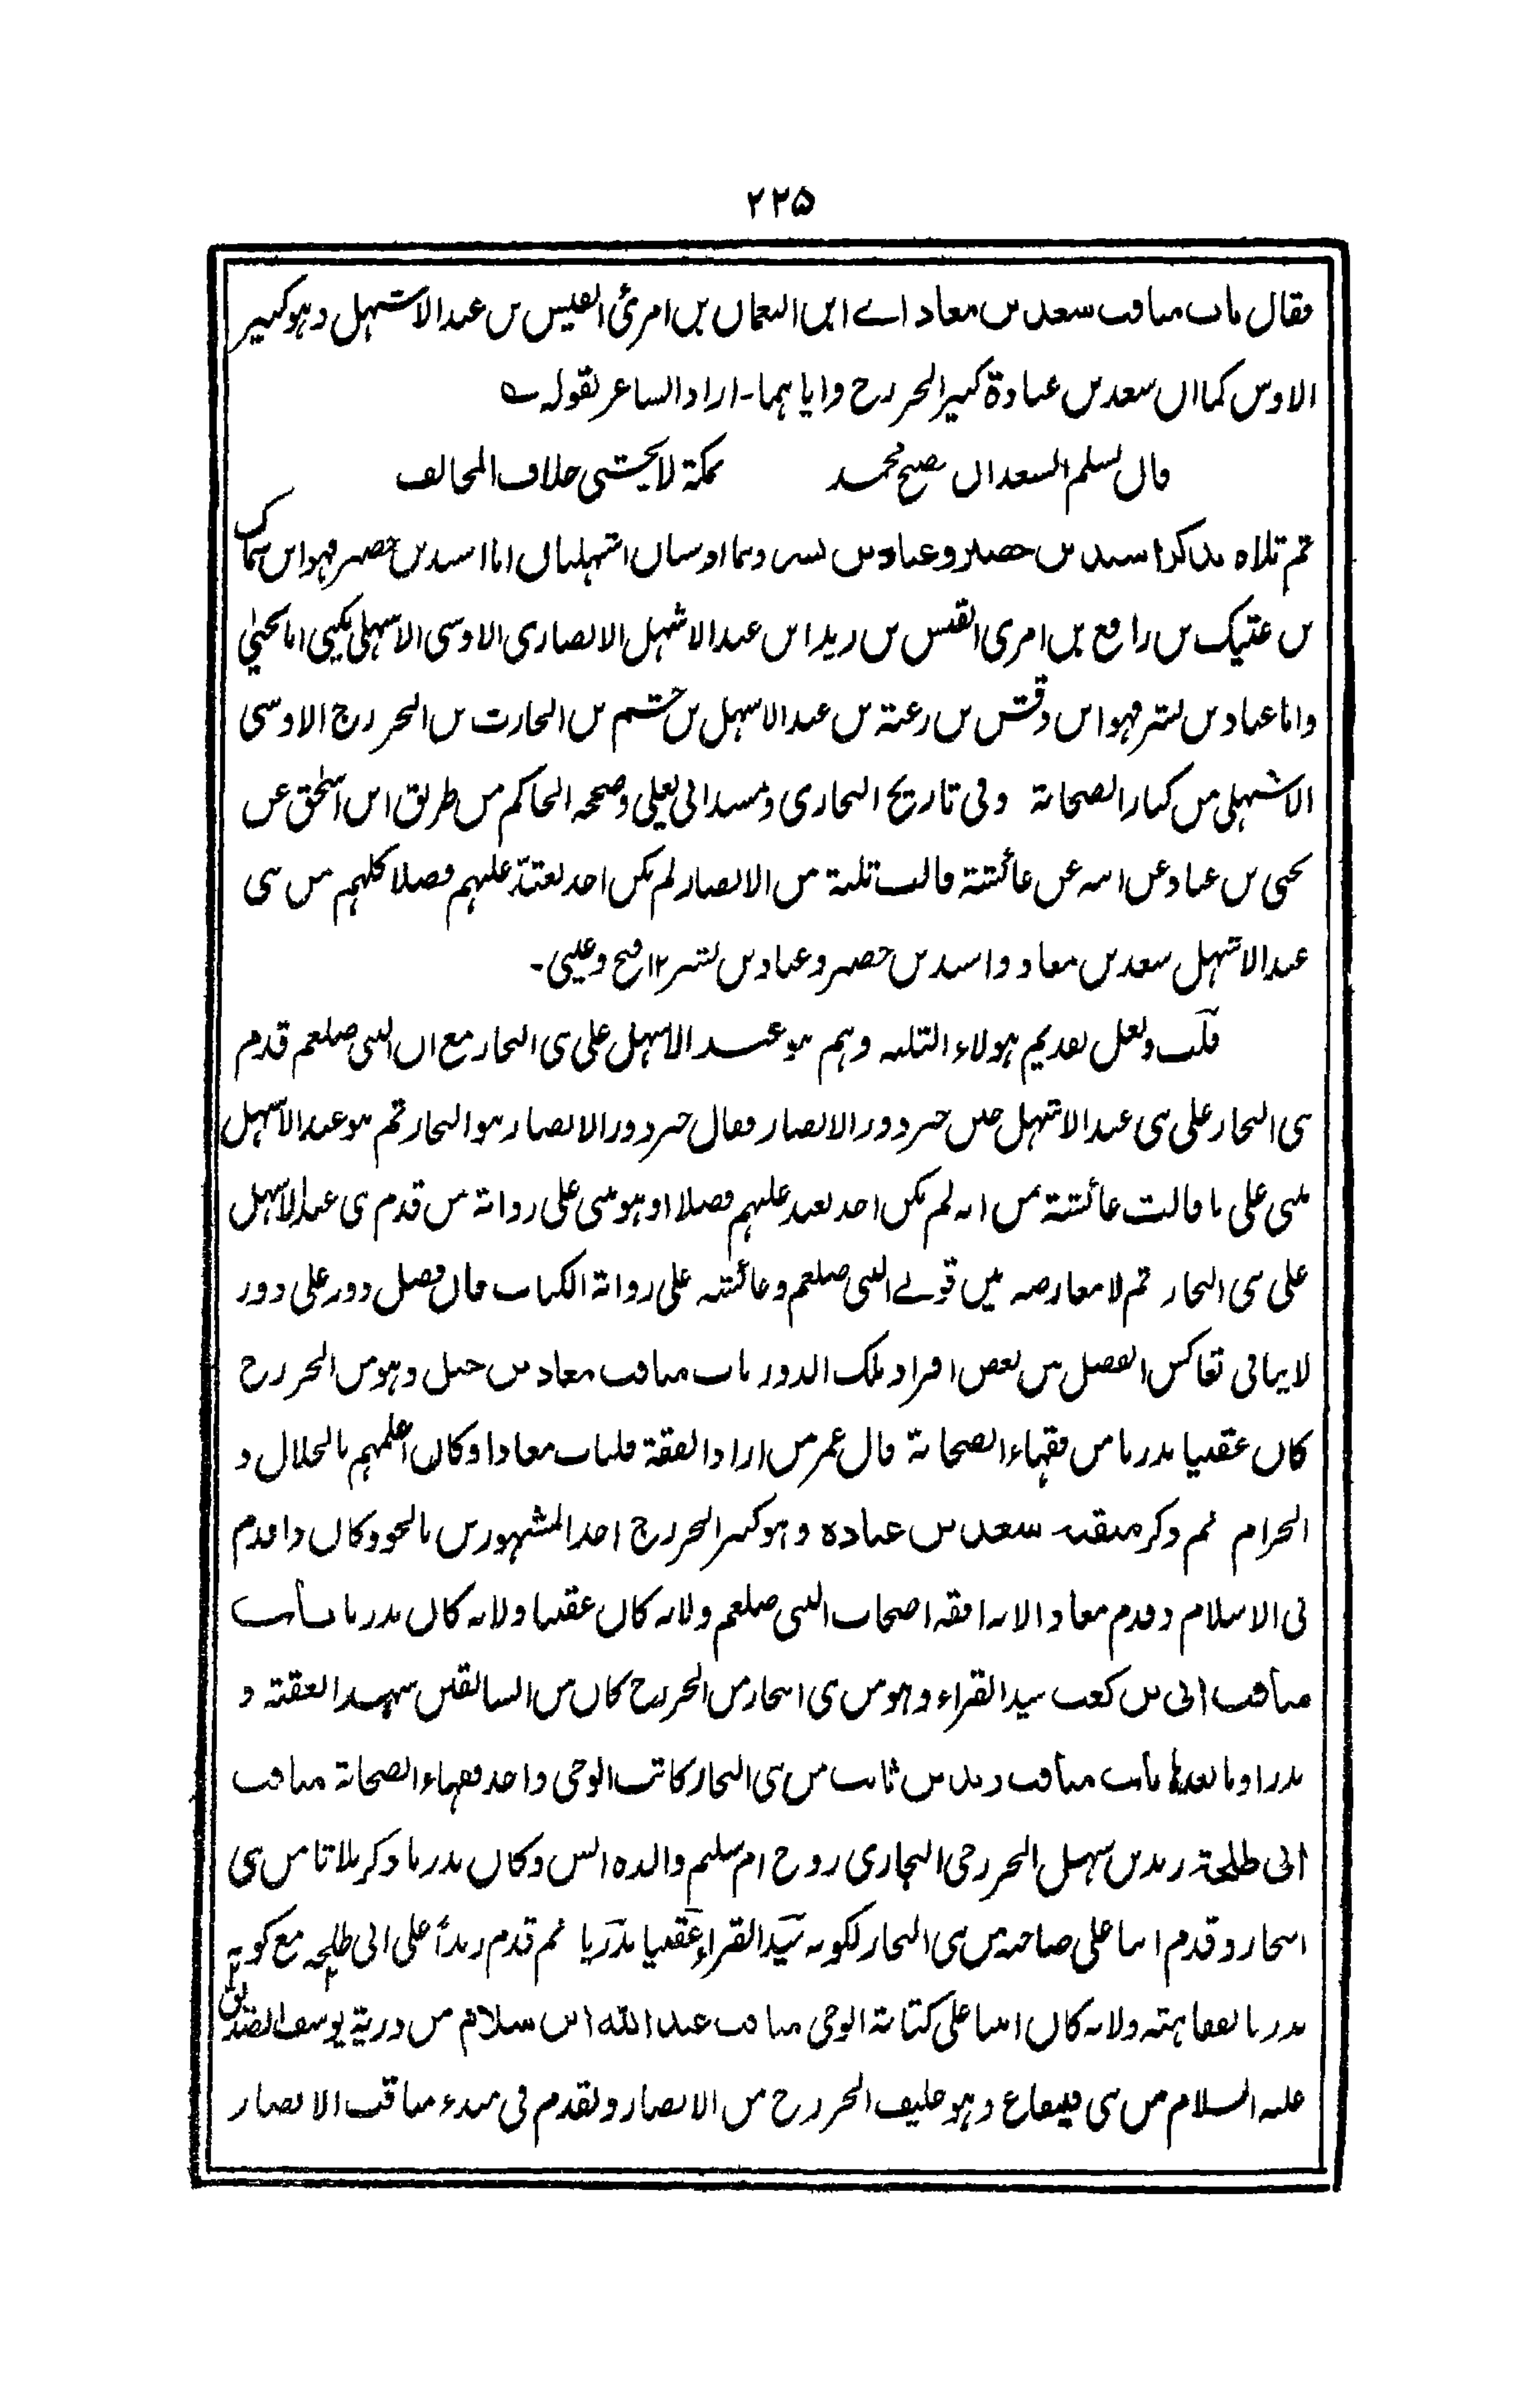 ۲۲۵
فقال باب مناقب سعد بن معاذ اے ابن النعمان بن امرئ القیس بن عبد الاشہل وہو کبیر
الاوس کما ان سعد بن عبادة کبیر الخزرج وایاہما۔ اراد الشاعر بقولہ ؎
فان یسلم السعدان یصبح محمد بمکة لا یخشی خلاف المخالف
ثم تلاہ بذکر اسید بن حضیر وعباد بن بشر وہما اوسیان اشہلیان اما اسید بن حضیر فہو ابن سماک
بن عتیک بن رافع بن امرئ القیس بن زید ابن عبد الاشہل الانصاری الاوسی الاشہلی یکنی ابا یحییٰ
واما عباد بن بشر فہو ابن وقش بن زغبة بن عبد الاشہل بن جشم بن الحارث بن الخزرج الاوسی
الاشہلی من کبار الصحابة وفی تاریخ البخاری ومسند ابی یعلی وصححہ الحاکم من طریق ابن اسحٰق عن
یحیی بن عباد عن ابیہ عن عائشة قالت ثلثة من الانصار لم یکن احد یعتد علیہم فضلا کلہم من بنی
عبد الاشہل سعد بن معاذ واسید بن حضیر وعباد بن بشر ۱۲ فتح وعینی۔
قلت ولعل تقدیم ہولاء الثلثہ وہم بنو عبد الاشہل علی بنی النجار مع ان النبی صلعم قدم
بنی النجار علی بنی عبد الاشہل حین خیر دور الانصار فقال خیر دور الانصار بنو النجار ثم بنو عبد الاشہل
مبنی علی ما قالت عائشة من انہ لم یکن احد یعتد علیہم فضلا او ہو مبنی علی روایة من قدم بنی عبد الاشہل
علی بنی النجار ثم لا معارضہ بین قولے النبی صلعم وعائشہ علی روایة الکتاب فان فضل دور علی دور
لا ینافی تعاکس الفضل من بعض افراد تلک الدور باب مناقب معاذ بن جبل وہو من الخزرج
کان عقبیا بدریا من فقہاء الصحابة قال عمر من اراد الفقة فلیات معاذا وکان اعلمہم بالحلال و
الحرام ثم ذکر منقبة سعد بن عبادہ وہو کبیر الخزرج احد المشہورین بالجود وکان ذا قدم
فی الاسلام وقدم معاذ الانہ افقہ اصحاب النبی صلعم ولانہ کان عقبیا ولانہ کان بدریا باب
مناقب ابی بن کعب سید القراء وہو من بنی النجار من الخزرج کان من السابقین شہد العقبة و
بدرا وما بعدہا باب مناقب زید بن ثابت من بنی النجار کاتب الوحی واحد فقہاء الصحابة مناقب
ابی طلحة زید بن سہل الخزرجی النجاری زوج ام سلیم والدہ انس وکان بدریا وذکر ثلاثا من بنی
النجار وقدم ابیا علی صاحبیہ من بنی النجار لکونہ سید القراء عقبیا بدریا ثم قدم زیداً علی ابی طلحہ مع کونہ
بدریا لفقاہتہ ولانہ کان امینا علی کتابة الوحی مناقب عبد اللہ ابن سلام من ذریة یوسف الصدیق
علیہ السلام من بنی قینقاع وہو حلیف الخزرج من الانصار وتقدم فی مبدء مناقب الانصار